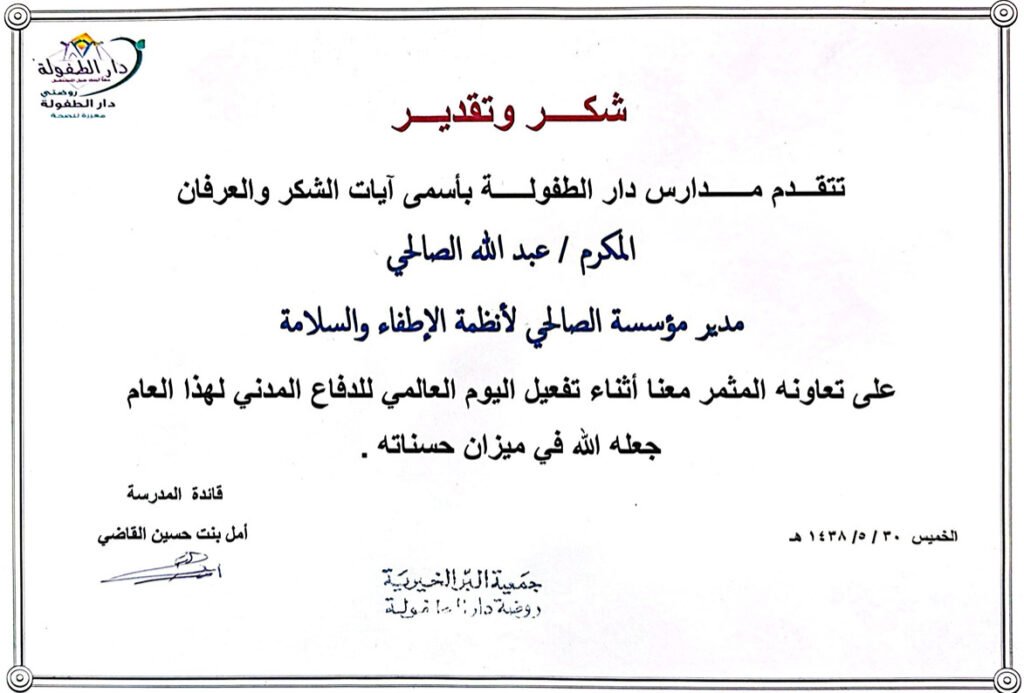 دار الطفولة
روضتي
دار الطفولة
معززة للصحة
شكر وتقدير
تتقدم مدارس دار الطفولة بأسمى آيات الشكر والعرفان
المكرم / عبد الله الصالحي
مدير مؤسسة الصالحي لأنظمة الإطفاء والسلامة
على تعاونه المثمر معنا أثناء تفعيل اليوم العالمي للدفاع المدني لهذا العام
جعله الله في ميزان حسناته .
قائدة المدرسة
أمل بنت حسين القاضي
الخميس ٣٠ / ٥ / ١٤٣٨ هـ
جمعية البر الخيرية
روضة دار الطفولة